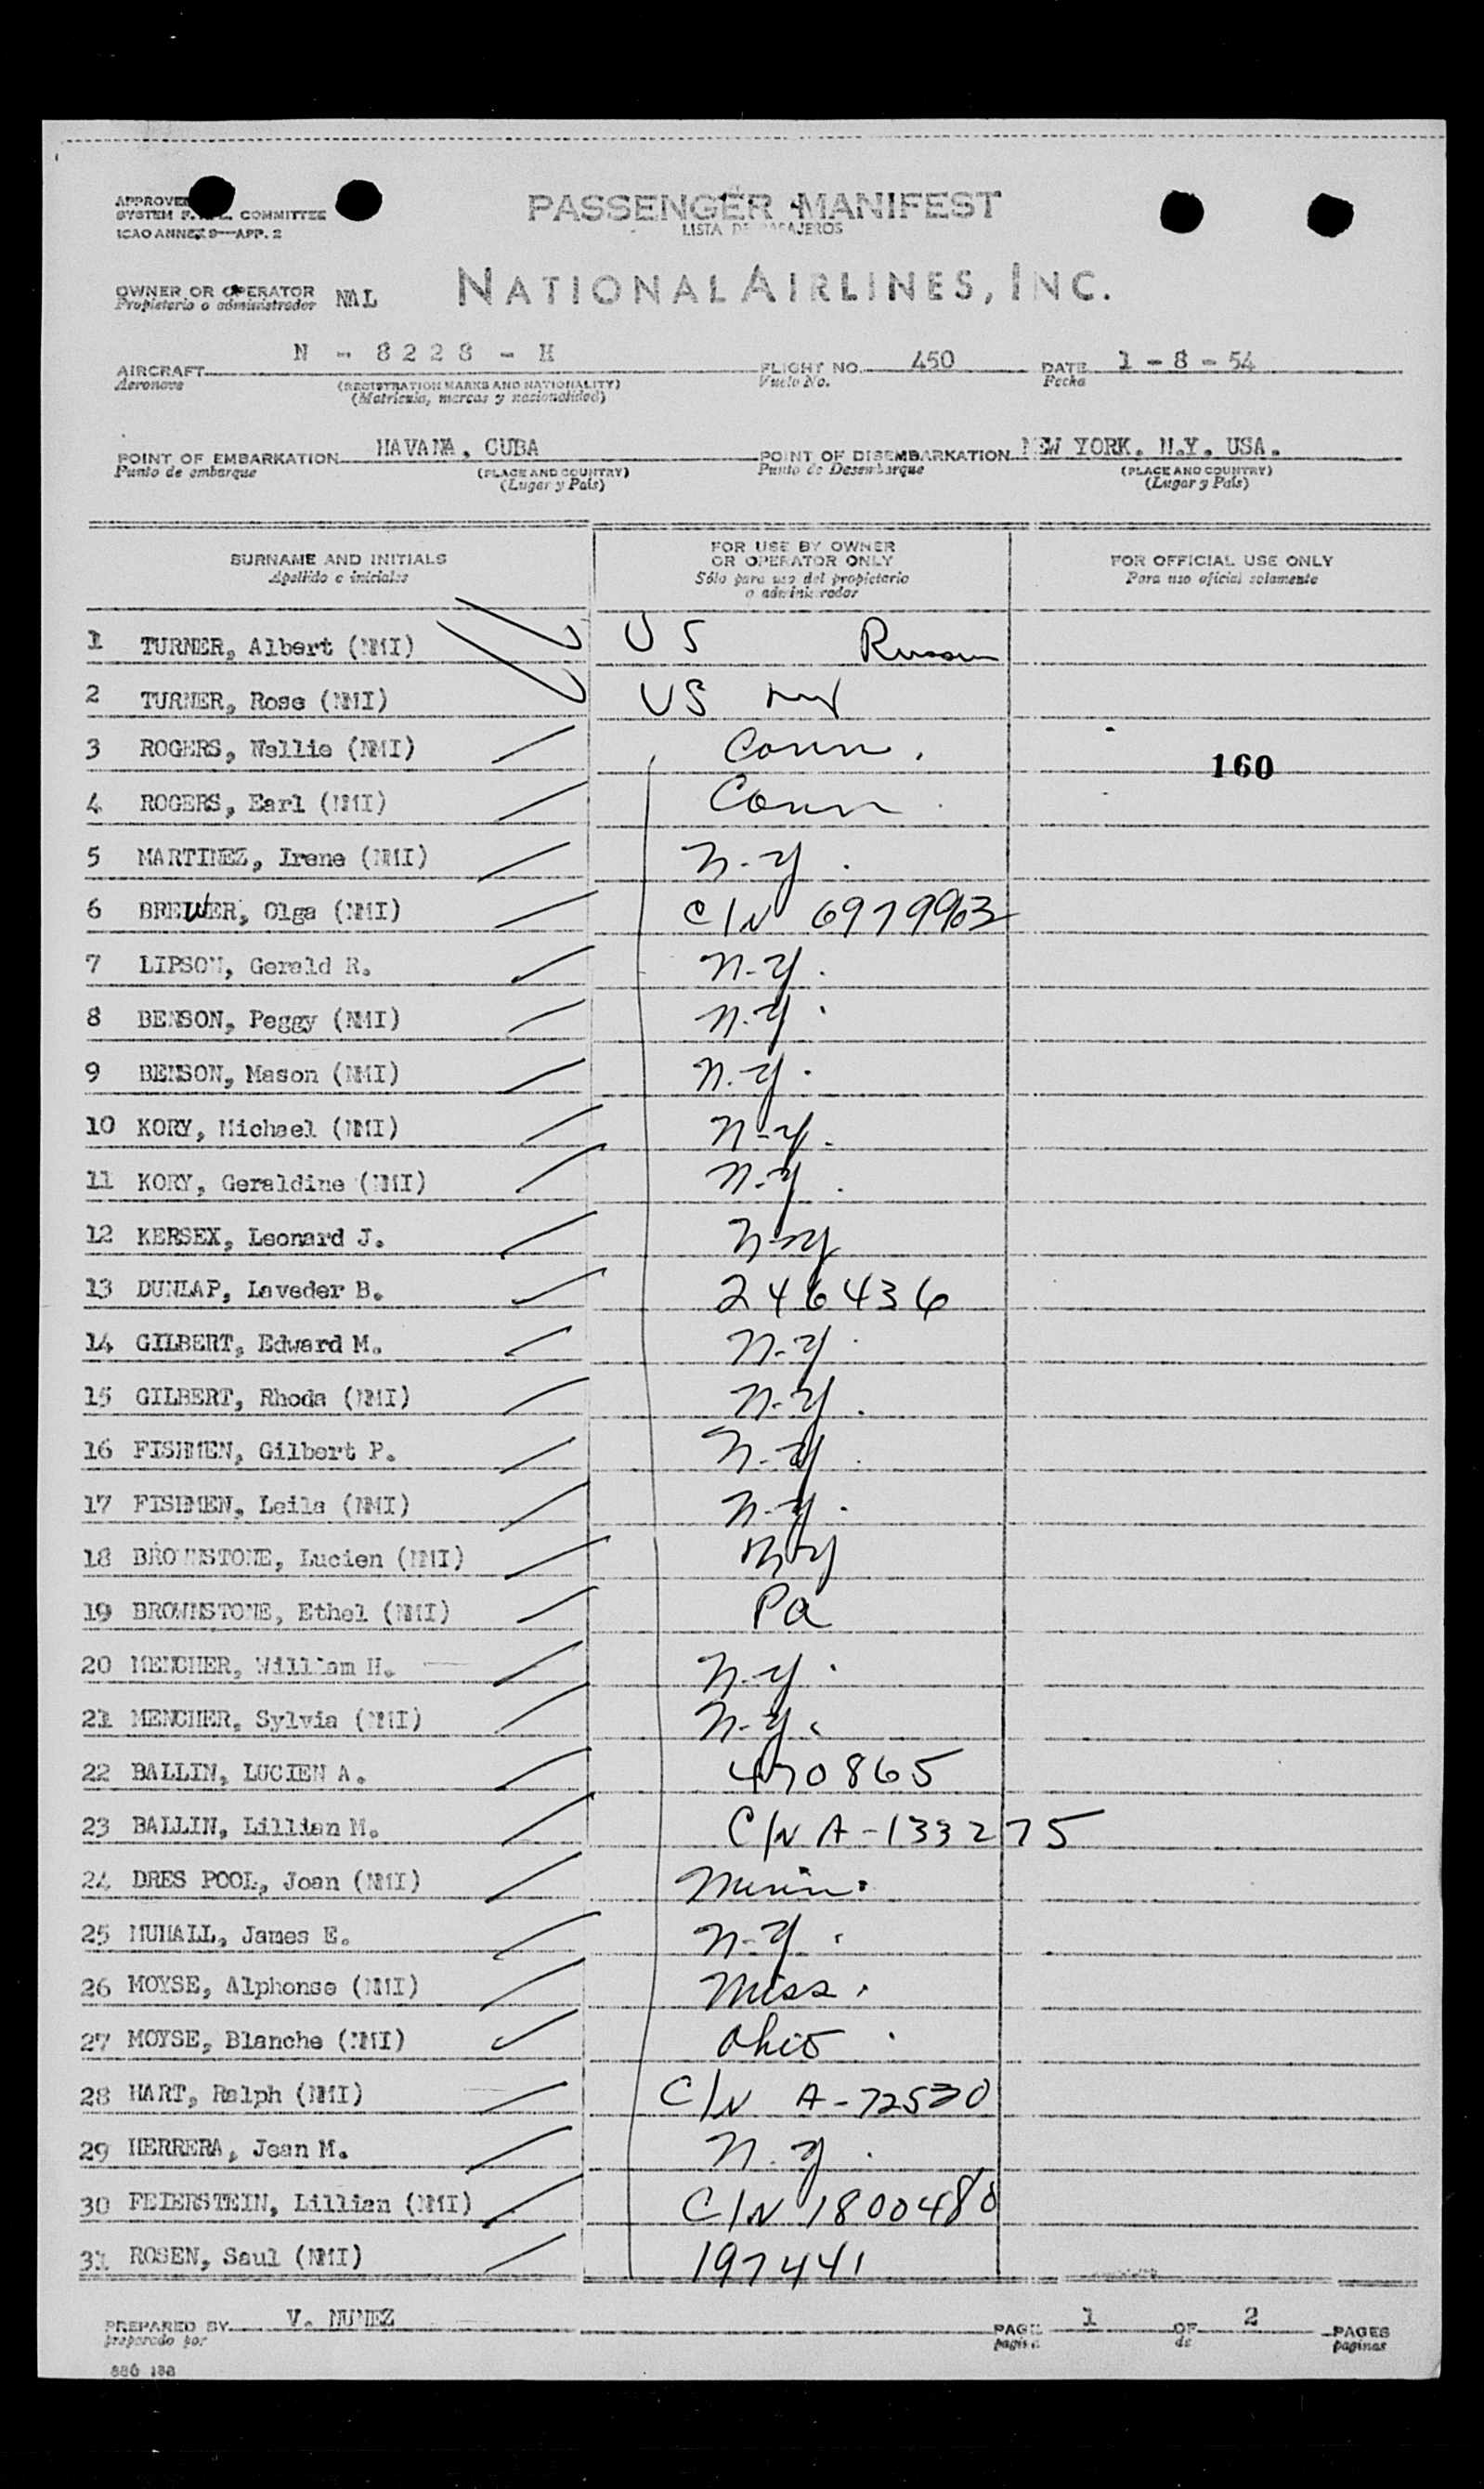 APPROVED
SYSTEM F. COMMITTEE
ICAO ANNEX 9—APP. 2
PASSENGER MANIFEST
LISTA DE PASAJEROS
OWNER OR OPERATOR NAL
Propietario o administrador
NATIONAL AIRLINES, INC.
AIRCRAFT N - 8228 - H FLIGHT NO. 450 DATE 1 - 8 - 54
Aeronave (REGISTRATION MARKS AND NATIONALITY) Vuelo No. Fecha
(Matricula, marcas y nacionalidad)
POINT OF EMBARKATION HAVANA, CUBA POINT OF DISEMBARKATION NEW YORK, N.Y. USA.
Punto de embarque (PLACE AND COUNTRY) Punto de Desembarque (PLACE AND COUNTRY)
(Lugar y País) (Lugar y País)
SURNAME AND INITIALS FOR USE BY OWNER OR OPERATOR ONLY FOR OFFICIAL USE ONLY
Apellido e iniciales Sólo para uso del propietario o administrador Para uso oficial solamente
1 TURNER, Albert (NMI) US Russia
2 TURNER, Rose (NMI) US
3 ROGERS, Nellie (NMI) Conn.
160
4 ROGERS, Earl (NMI) Conn
5 MARTINEZ, Irene (NMI) N-Y.
6 BREWER, Olga (NMI) C/N 6979963
7 LIPSON, Gerald R. N-Y.
8 BENSON, Peggy (NMI) N.Y.
9 BENSON, Mason (NMI) N.Y.
10 KORY, Michael (NMI) N-Y.
11 KORY, Geraldine (NMI) N-Y.
12 KERSEX, Leonard J. N-Y
13 DUNLAP, Laveder B. 2466436
14 GILBERT, Edward M. N-Y.
15 GILBERT, Rhoda (NMI) N-Y.
16 FISHMEN, Gilbert P. N-Y.
17 FISHMEN, Leila (NMI) N-Y.
18 BROWNSTONE, Lucien (NMI) N-Y
19 BROWNSTONE, Ethel (NMI) Pa
20 MENCHER, William H. N-Y.
21 MENCHER, Sylvia (NMI) N-Y.
22 BALLIN, LUCIEN A. 470865
23 BALLIN, Lillian M. C/N A-133275
24 DRES POOL, Joan (NMI) Minn.
25 MUHALL, James E. N-Y.
26 MOYSE, Alphonse (NMI) Miss.
27 MOYSE, Blanche (NMI) Ohio.
28 HART, Ralph (NMI) C/N A-72530
29 HERRERA, Jean M. N.Y.
30 FEIERSTEIN, Lillian (NMI) C/N 1800480
31 ROSEN, Saul (NMI) 197441
PREPARED BY V. NUNEZ PAGE 1 OF 2 PAGES
preparado por pagina de paginas